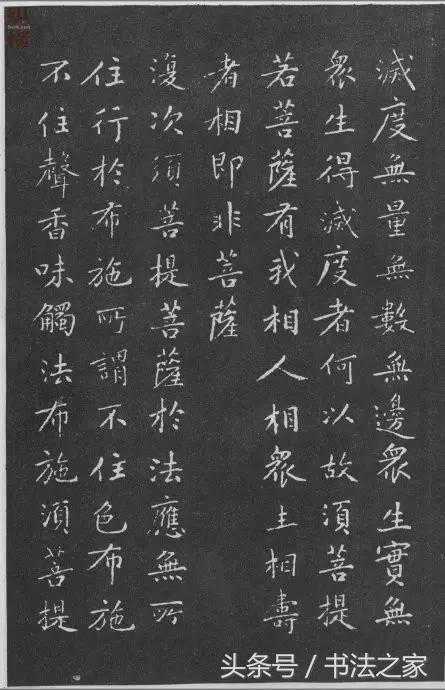 滅度無量無數無邊眾生實無
眾生得滅度者何以故須菩提
若菩薩有我相人相眾生相壽
者相即非菩薩
復次須菩提菩薩於法應無所
住行於布施所謂不住色布施
不住聲香味觸法布施須菩提
头条号 / 书法之家